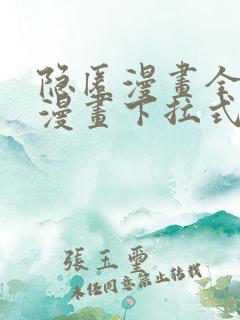 隐匿漫畫全
漫畫下拉式
張玉璽
未經同意禁止轉載